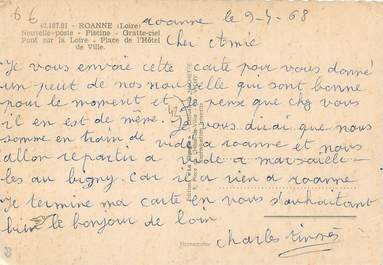 6€
42.187.81 - ROANNE (Loire)
Nouvelle-poste - Piscine - Gratte-ciel
Pont sur la Loire - Place de l'Hôtel
de Ville.
roanne le 9-4-68
Cher Amie
Je vous envoie cette carte pour vous donné
un peut de nos nouvelle qui sont bonne
pour le moment et je pense que chez vous
il en est de même. Je vous dirai que nous
somme en train de vide a roanne et nous
allon repartir a vide a marsaille
les au bigny. car il a rien a roanne
Je termine ma carte en vous s'ouhaitant
bien le bonjour de loin
charles